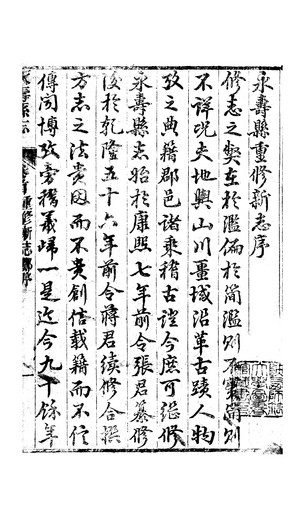 永壽縣重修新志序
修志之弊在於濫偏於簡濫則不實簡則
不詳況夫地輿山川疆域沿革古蹟人物
攷之典籍郡邑諸乘稽古證今庶可繼修
永壽縣志始於康熙七年前令張君纂修
後於乾隆五十六年前令蔣君續修合撰
方志之法貴因而不貴創信載籍而不信
傳聞博攷旁稽義歸一是迄今九十餘年
永壽縣志
卷首 重修新志 序